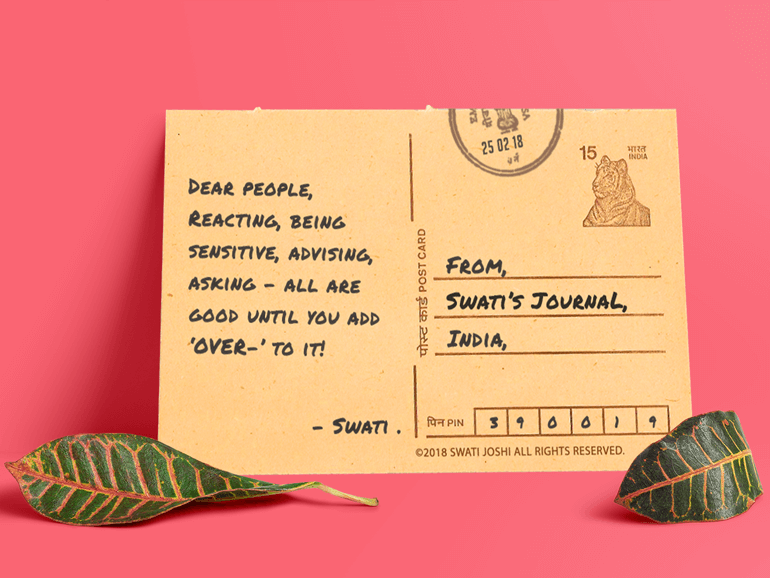 Dear people,
Reacting, being
sensitive, advising,
asking – all are
good until you add
'OVER-' to it!
– Swati .
पोस्ट कार्ड POST CARD
25 02 18
15
भारत
INDIA
From,
Swati's Journal,
India,
पिन PIN 3 9 0 0 1 9
©2018 SWATI JOSHI ALL RIGHTS RESERVED.